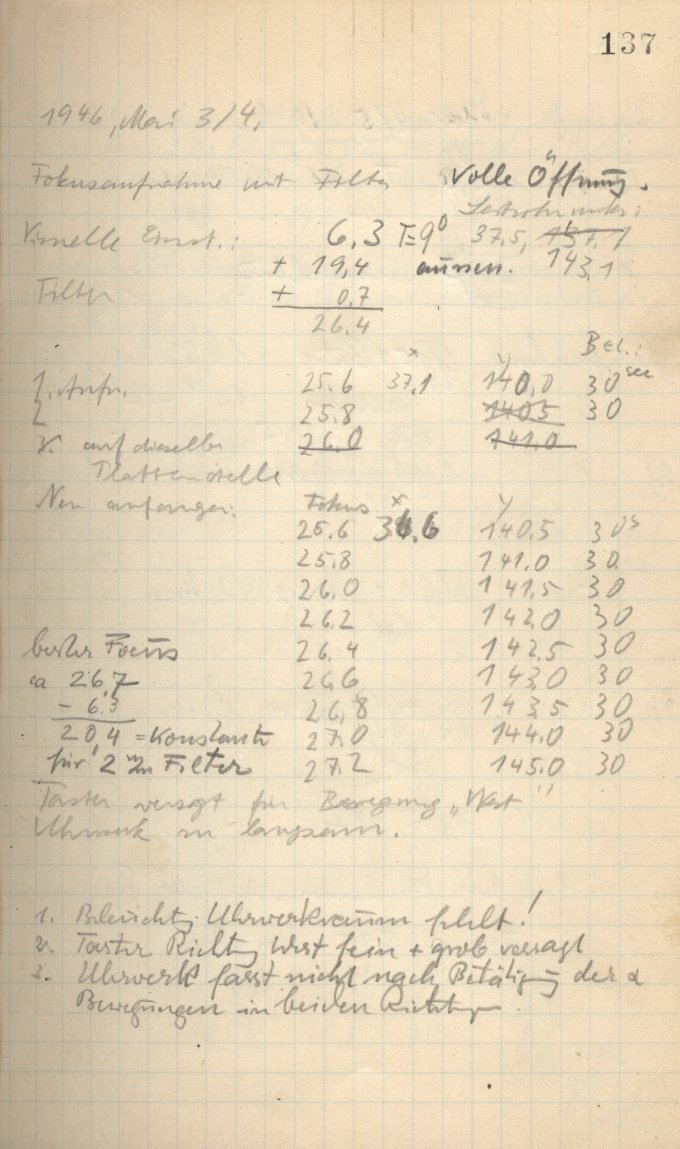 137
1946, Mai 3/4.
Fokusaufnahme mit Filter Volle Öffnung.
Leitrohr unten:
Visuelle Einst.: 6,3 T=9° 37,5, 137,1
+ 19,4 aussen. 143,1
Filter + 0,7
26,4
Bel.:
1. Aufn. 25.6 x 37,1 y 140,0 30 sec
2 25.8 140,5 30
3. auf dieselbe 26,0 141,0
Plattenstelle
Neu anfangen: Fokus x y
25.6 36,6 140,5 30 s
25.8 141.0 30
26.0 141,5 30
26.2 142,0 30
bester Focus 26.4 142,5 30
ca 26,7 26,6 143,0 30
- 6,3 26,8 143,5 30
20,4 = Konstante 27.0 144,0 30
für 2 mm Filter 27.2 145,0 30
Taster versagt für Bewegung „West"
Uhrwerk zu langsam.
1. Beleuchtg Uhrwerkraum fehlt!
2. Taster Richtg West fein + grob versagt
3. Uhrwerk fasst nicht nach Betätigung der α
Bewegungen in beiden Richtungen.